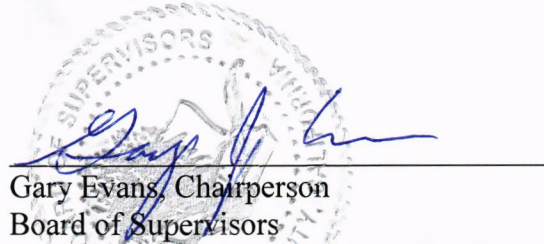 SUPERVISORS
Gary Evans, Chairperson
Board of Supervisors